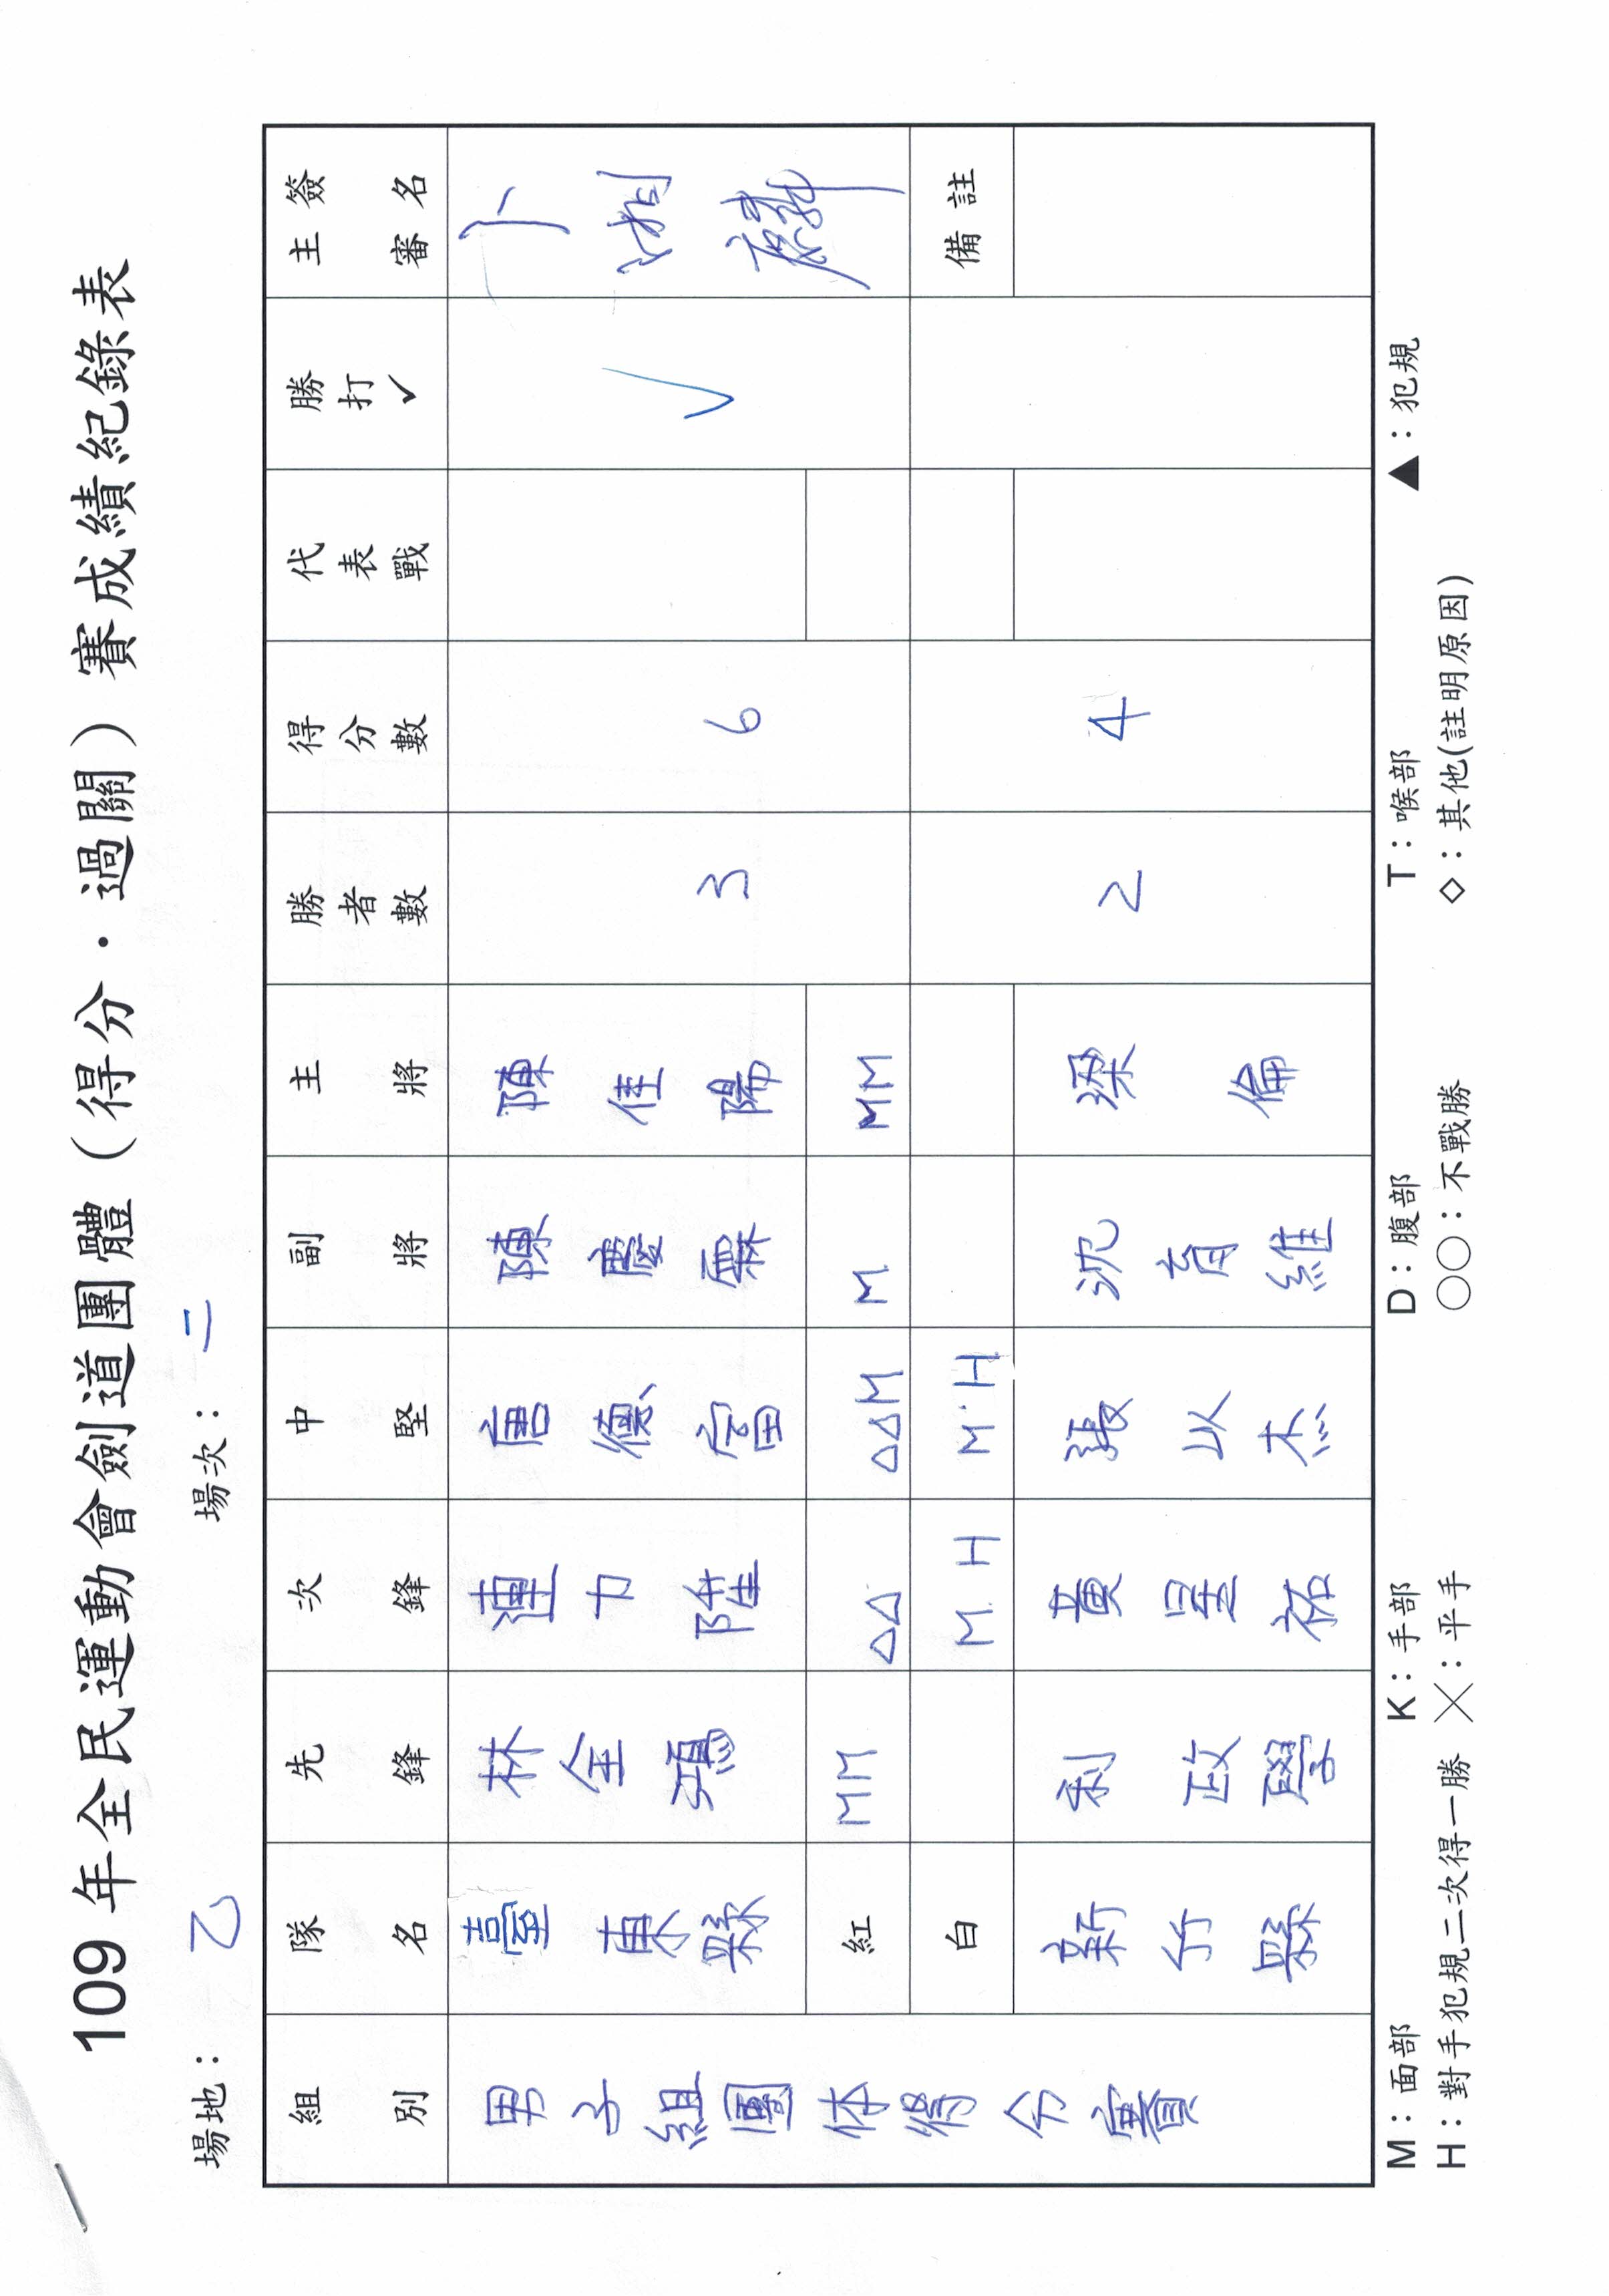 109 年全民運動會劍道團體（得分．過關）賽成績紀錄表
場地： 乙 場次： 二
組別 隊名 先鋒 次鋒 中堅 副將 主將 勝者數 得分數 代表戰 勝打✓ 主審簽名
男子組團体得分賽
臺東縣 林全鴻 連力陞 唐德富 陳慶霖 陳佳陽 3 6 ✓
紅 MM △△ △△M M MM
白 M H M H 備註
新竹縣 利政學 黃星祐 張以杰 沈育維 梁倫 2 4
M：面部 K：手部 D：腹部 T：喉部 ▲：犯規
H：對手犯規二次得一勝 ╳：平手 ○○：不戰勝 ◇：其他(註明原因)